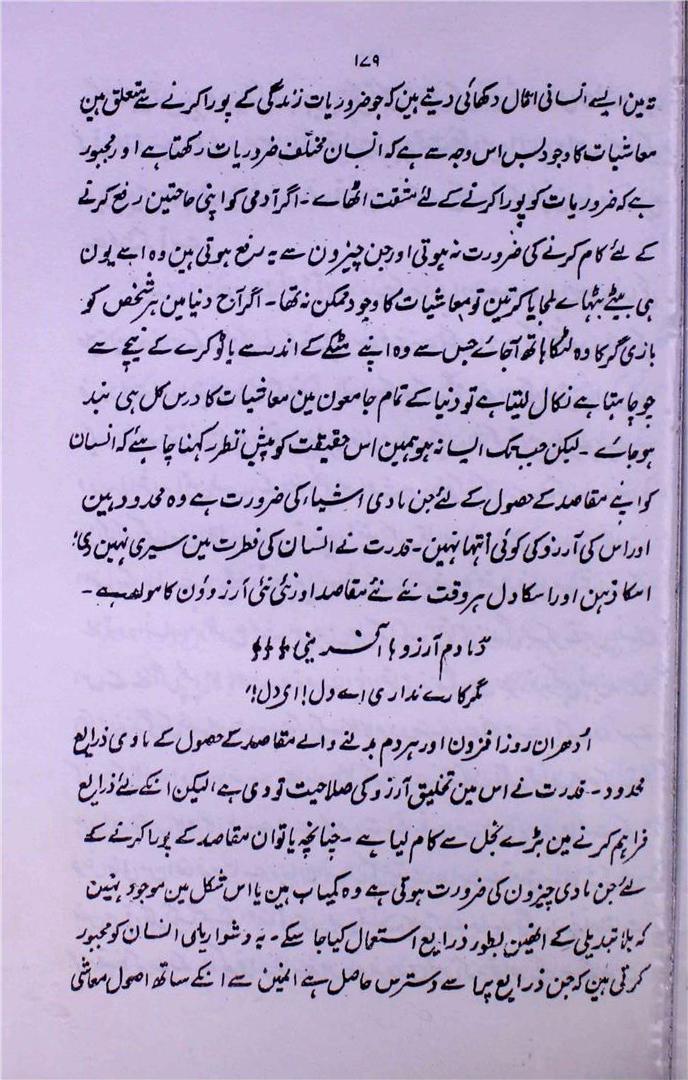 ۱۷۹
تہ مین ایسے انسانی افعال دکھائی دیتے ہین کہ جو ضروریات زندگی کے پورا کرنے سے متعلق ہین
معاشیات کا وجود بس اس وجہ سے ہے کہ انسان مختلف ضروریات رکھتا ہے اور مجبور
ہے کہ ضروریات کو پورا کرنے کے لئے مشقت اٹھاے ۔ اگر آدمی کو اپنی حاجتین رفع کرنے
کے لئے کام کرنے کی ضرورت نہ ہوتی اور جن چیزون سے یہ رفع ہوتی ہین وہ اسے یون
ہی بیٹھے بٹھاے ملجایا کرتین تو معاشیات کا وجود ممکن نہ تھا ۔ اگر آج دنیا مین ہر شخص کو
بازی گر کا وہ لٹکا ہاتھ آجائے جس سے وہ اپنے مٹکے کے اندر سے یا ٹوکرے کے نیچے سے
جو چاہتا ہے نکال لیتا ہے تو دنیا کے تمام جامعون مین معاشیات کا درس کل ہی بند
ہو جاے ۔ لیکن جب تک ایسا نہ ہو ہمین اس حقیقت کو پیش نظر رکہنا چاہئے کہ انسان
کو اپنے مقاصد کے حصول کے لئے جن مادی اشیاء کی ضرورت ہے وہ محدود ہین
اور اس کی آرزو کی کوئی انتہا نہین ۔ قدرت نے انسان کی فطرت مین سیری نہین دی؛
اسکا ذہن اور اسکا دل ہر وقت نئے نئے مقاصد اور نئی نئی آرزوؤن کا مولد ہے ۔
دمادم آرزوہا آفرینی
مگر کارے نداری اے دل! ای دل!
اُدھر ان روز افزون اور ہر دم بدلنے والے مقاصد کے حصول کے مادی ذرایع
محدود ۔ قدرت نے اس مین تخلیق آرزو کی صلاحیت تو دی ہے لیکن انکے لئے ذرایع
فراہم کرنے مین بڑے بخل سے کام لیا ہے ۔ چنانچہ یا تو ان مقاصد کے پورا کرنے کے
لئے جن مادی چیزون کی ضرورت ہوتی ہے وہ کمیاب ہین یا اس شکل مین موجود نہین
کہ بلا تبدیلی کے انھین بطور ذرایع استعمال کیا جا سکے ۔ یہ دشواریای انسان کو مجبور
کرتی ہین کہ جن ذرایع پر اسے دسترس حاصل ہے انھین سے انکے ساتھ اصول معاشی